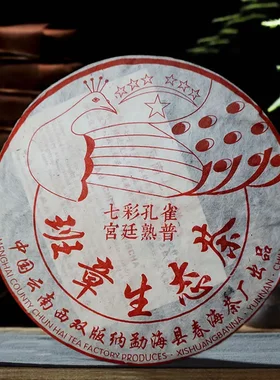 七彩孔雀
宫廷熟普
班章生态茶
中国云南西双版纳勐海县春海茶厂出品
MENGHAI COUNTY CHUN HAI TEA FACTORY PRODUCES - XISHUANGBANNA - YUNNAN